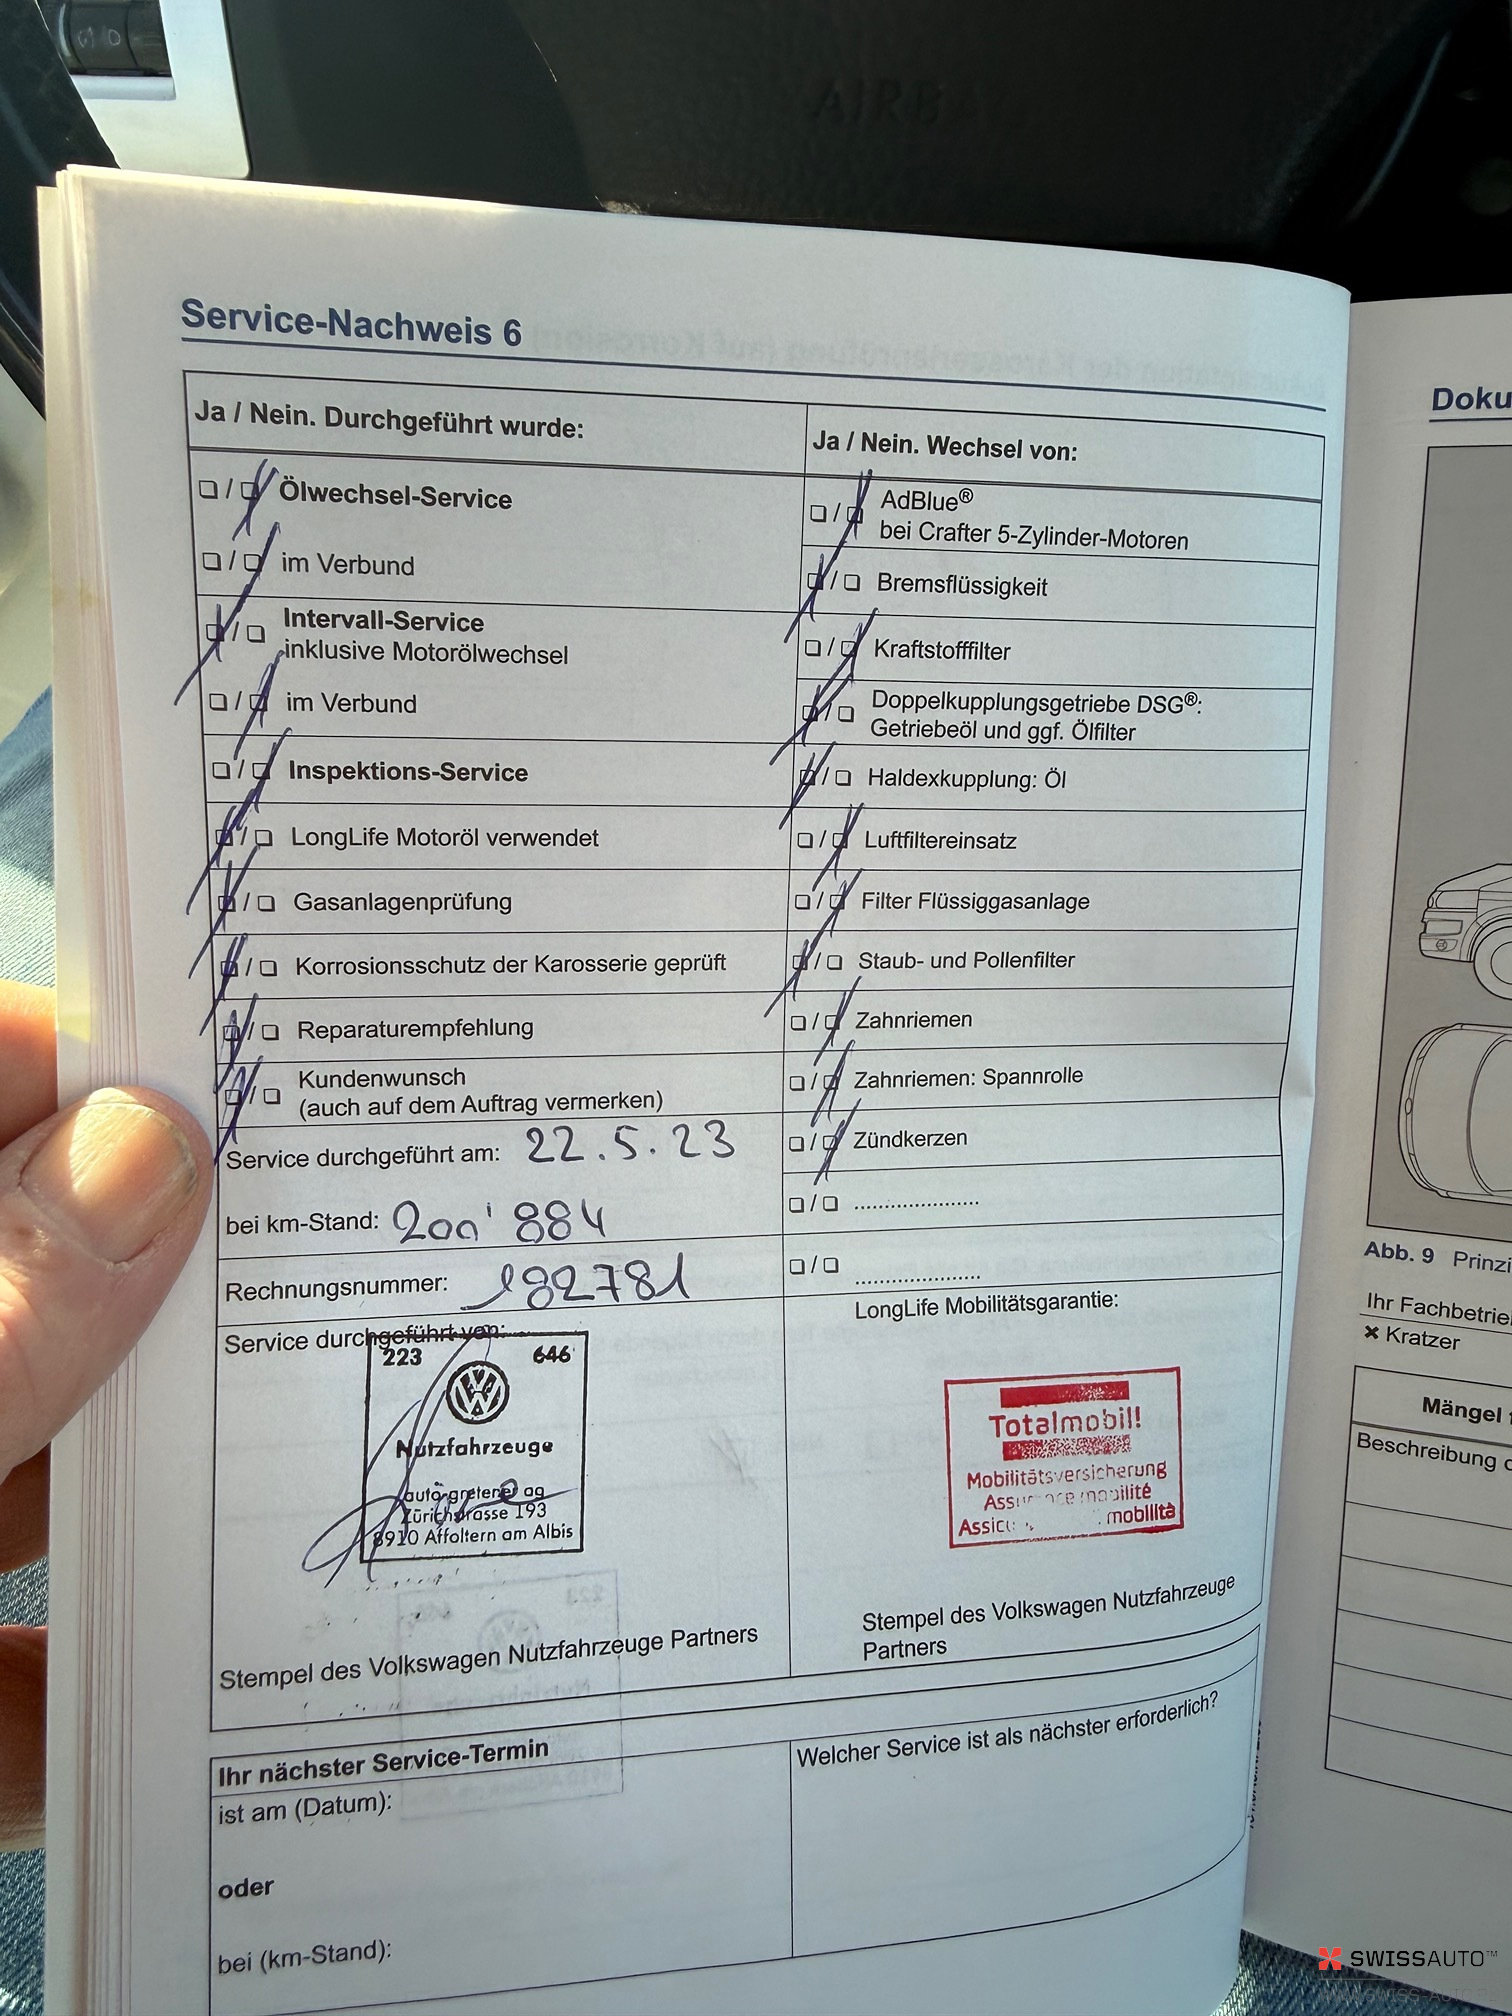 AIRBA
Service-Nachweis 6
Ja / Nein. Durchgeführt wurde:
Ölwechsel-Service
im Verbund
Intervall-Service
inklusive Motorölwechsel
im Verbund
Inspektions-Service
LongLife Motoröl verwendet
Gasanlagenprüfung
Korrosionsschutz der Karosserie geprüft
Reparaturempfehlung
Kundenwunsch
(auch auf dem Auftrag vermerken)
Service durchgeführt am: 22.5.23
bei km-Stand: 200'884
Rechnungsnummer: 182781
Service durchgeführt von:
223 646
Nutzfahrzeuge
auto-gretener ag
Zürichstrasse 193
8910 Affoltern am Albis
Stempel des Volkswagen Nutzfahrzeuge Partners
Ja / Nein. Wechsel von:
AdBlue®
bei Crafter 5-Zylinder-Motoren
Bremsflüssigkeit
Kraftstofffilter
Doppelkupplungsgetriebe DSG®:
Getriebeöl und ggf. Ölfilter
Haldexkupplung: Öl
Luftfiltereinsatz
Filter Flüssiggasanlage
Staub- und Pollenfilter
Zahnriemen
Zahnriemen: Spannrolle
Zündkerzen
LongLife Mobilitätsgarantie:
Totalmobil!
Mobilitätsversicherung
mobilité
mobilità
Stempel des Volkswagen Nutzfahrzeuge
Partners
Ihr nächster Service-Termin
ist am (Datum):
oder
bei (km-Stand):
Welcher Service ist als nächster erforderlich?
Doku
Abb. 9 Prinzi
Ihr Fachbetrie
× Kratzer
Mängel
Beschreibung
SWISSAUTO™